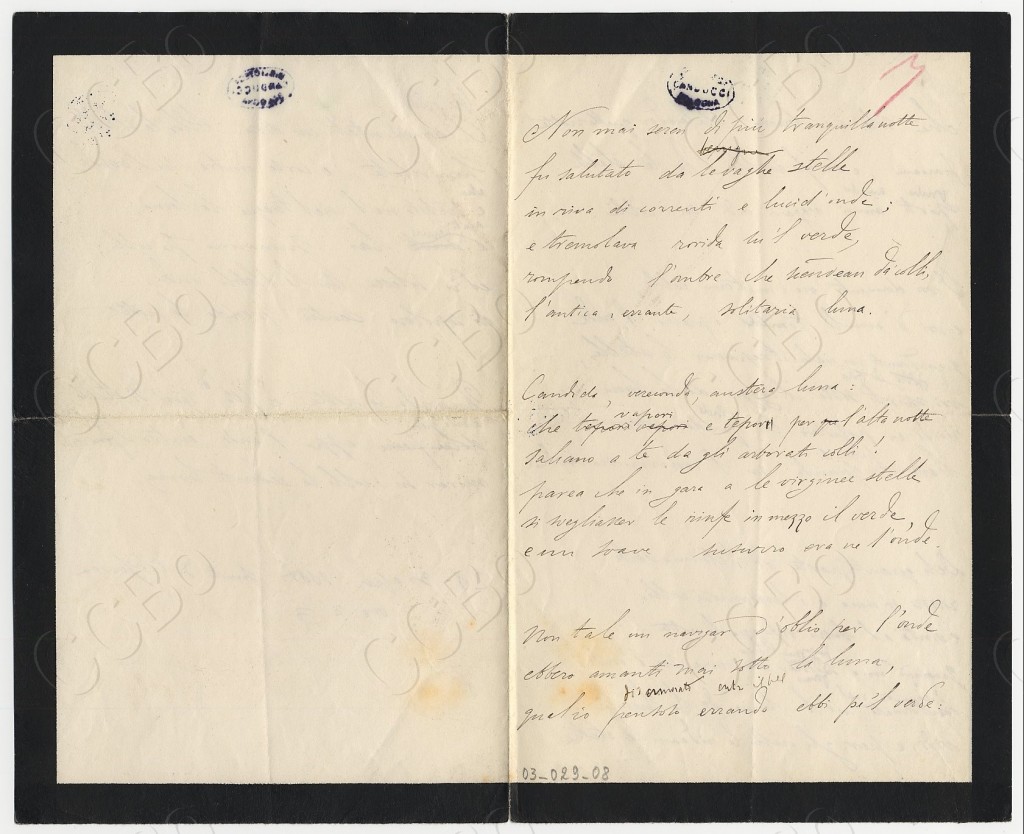 CARDUCCI
BOLOGNA
Non mai seren di più tranquilla notte
benigna
fu salutato da le vaghe stelle
in riva di correnti e lucid'onde;
e tremolava rorida su'l verde,
rompendo l'ombre che scendean da' colli,
l'antica, errante, solitaria luna.
Candida, vereconda, austera luna:
vapori
che tepori vapori e tepori per l'alta notte
saliano a te da gli arborati colli!
parea che in gara a le virginee stelle
si svegliasser le ninfe in mezzo il verde,
e un soave susurro era ne l'onde.
Non tale un navigar d'oblio per l'onde
ebbero amanti mai sotto la luna,
qual io pensoso errando ebbi pe'l verde:
03-029-08
CCBO